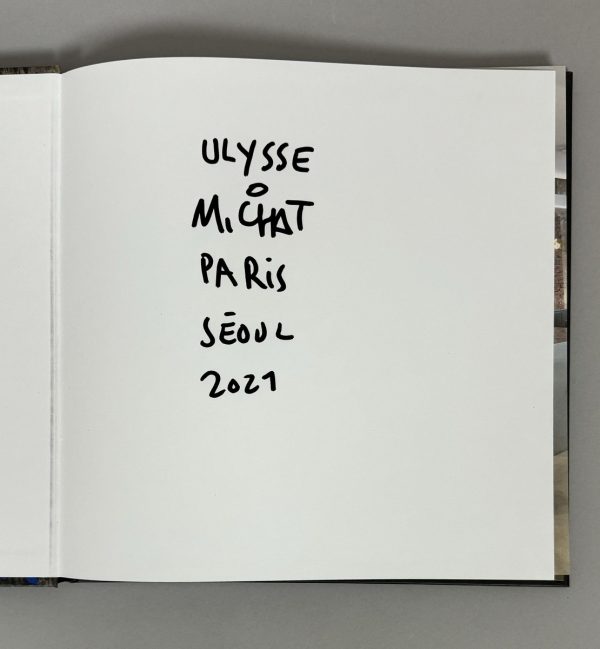 ULYSSE
MiCHAT
PARiS
SĒOUL
2021